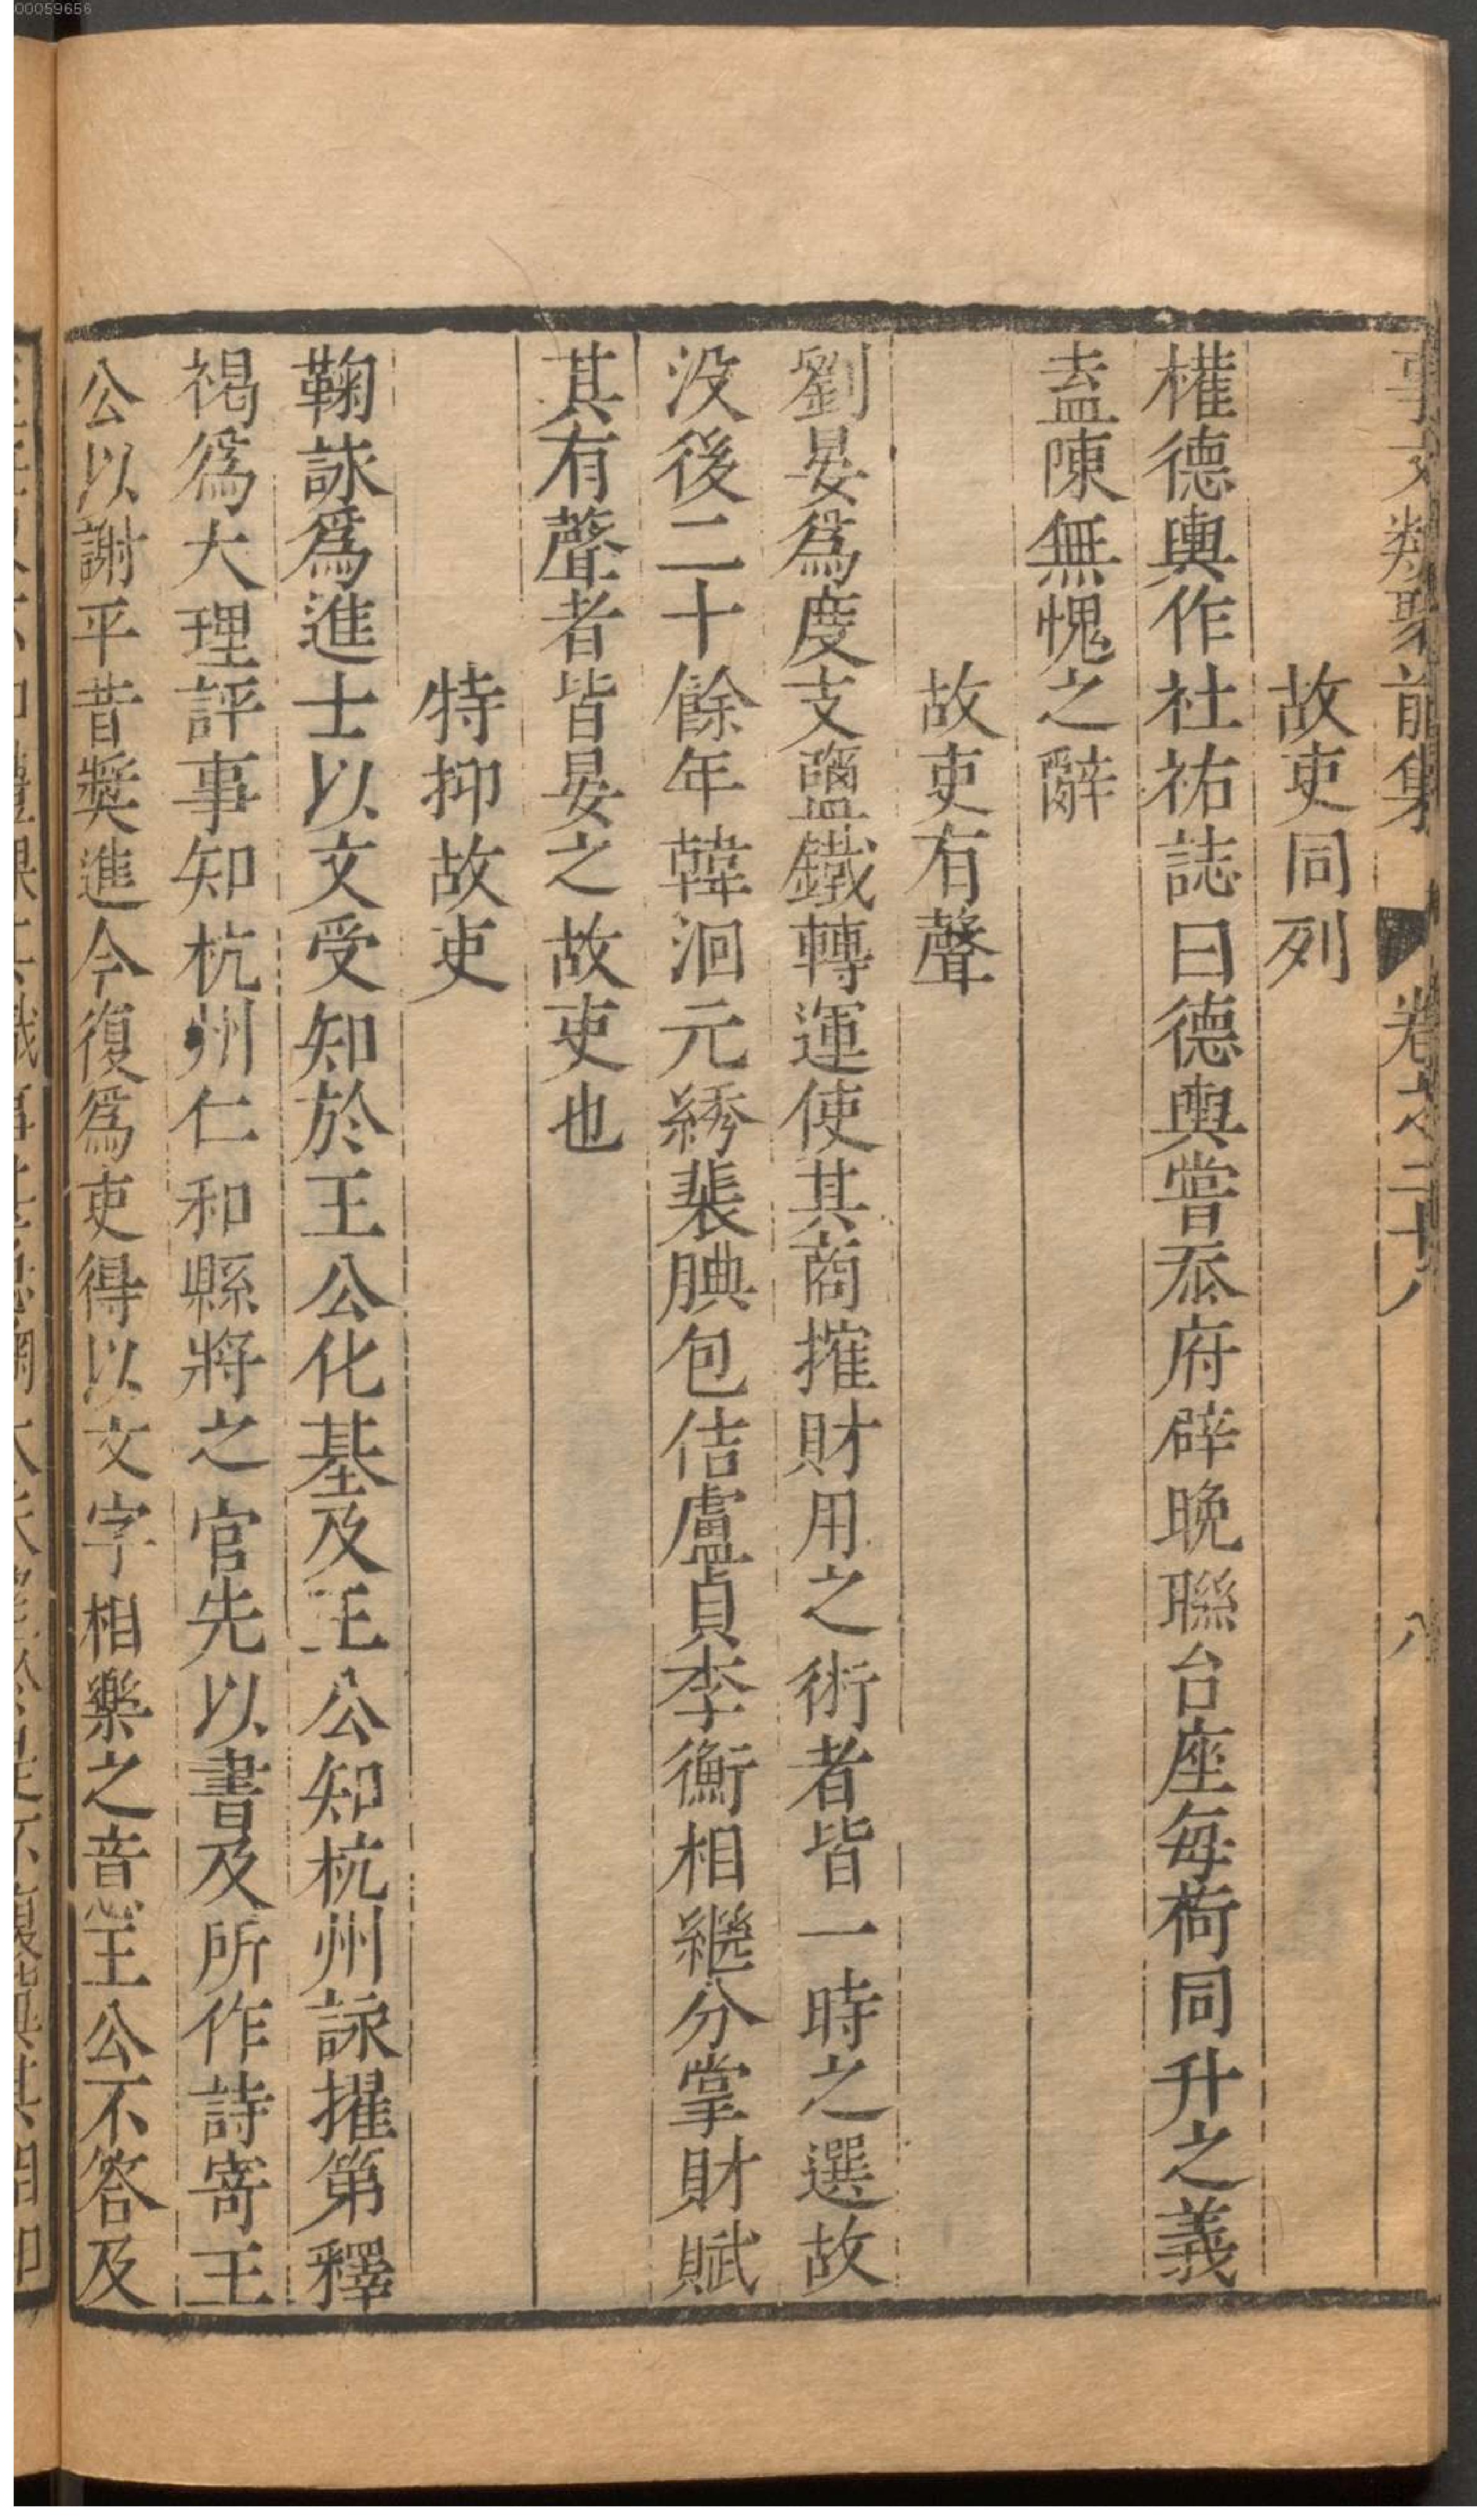 00059656
事文類聚前集 卷之二十八 八
故吏同列
權德輿作杜祐誌曰德輿嘗忝府辟晚聯台座每荷同升之義
盍陳無愧之辭
故吏有聲
劉晏爲度支鹽鐵轉運使其商搉財用之術者皆一時之選故
没後二十餘年韓洄元綉裴腆包佶盧貞李衡相繼分掌財賦
其有聲者皆晏之故吏也
特抑故吏
鞠詠爲進士以文受知於王公化基及王公知杭州詠擢第釋
褐爲大理評事知杭州仁和縣將之官先以書及所作詩寄王
公以謝平昔奬進今復爲吏得以文字相樂之意王公不答及